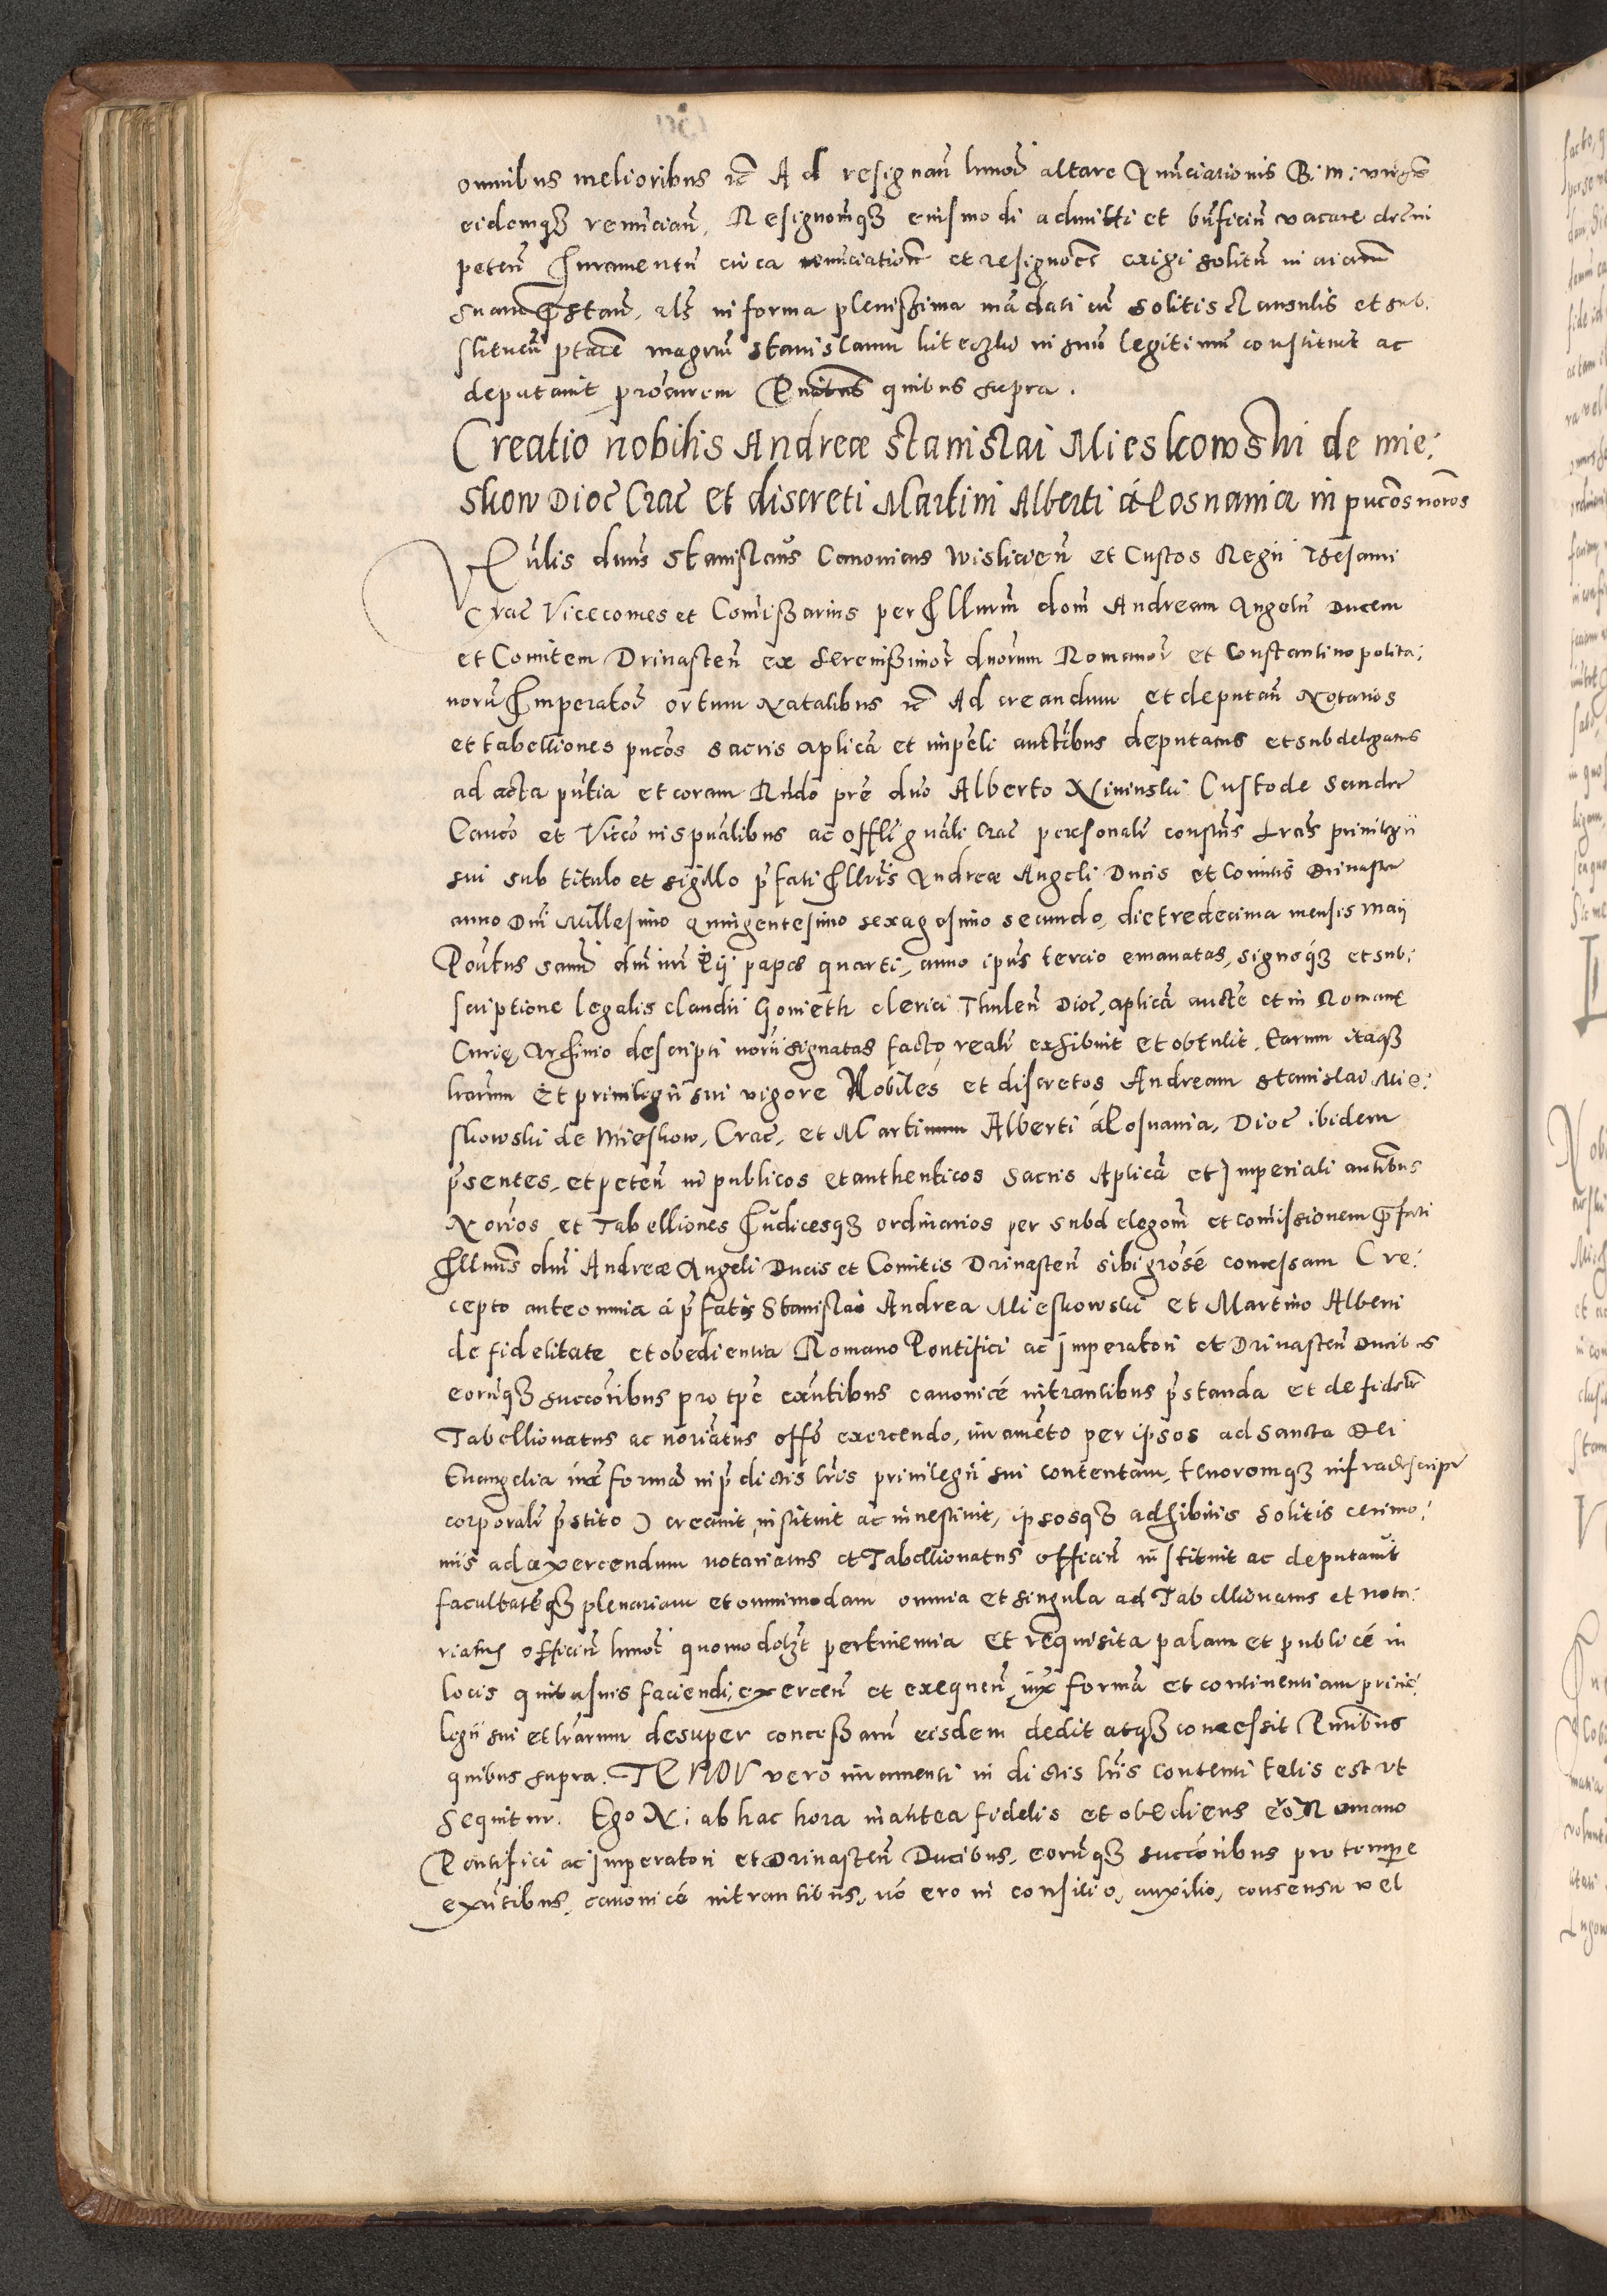 omnibus melioribus &c̃ Ad resignan̄ hmoi altare Annũciationis B: M: virgis
eidemqȝ renũcian̄, Resignonemqȝ eiusmodi admitti et bñficiũ vacare decerni
peten̄ Iuramentũ circa renũciationẽ et resignõẽ exigi solitũ in aĩam
suam pstan̄, als in forma plenissima mãdati cũ solitis clausulis et sub:
stituen̄ ptatẽ magrũ Stanislaum in suũ legitimũ constituit ac
deputavit procurem Pñtibus quibus supra.
Creatio nobilis Andreæ Stanislai Mieskowski de mie:
skow Dioc̃ Crac̃ et discreti Martini Alberti á Posnania in pucos noros
Vñlis dñus Stanislaus Canonicus Wislicien̄ et Custos Regii Thesauri
Crac̃ Vicecomes et Comissarius per Illurm̃ dom̃ Andream Angelũ Ducem
et Comitem Drinasten̄ ex serenissimor̃ duorum Romanor̃ et Constantinopolita:
norũ Imperator̃ ortum Natalibus &c̃ Ad creandum et deputan̄ Notarios
et tabelliones pucos sacris aplica et impeli auctibus deputatus et subdelegatus
ad acta pñtia et coram Rñdo prẽ dño Alberto Custode Sandr̃
Canco et Vicco in spualibus ac offli gnali Crac̃ personalr̃ constus lras privilegii
sui sub titulo et sigillo p̃fati Illmis Andreæ Angeli Ducis et Comitis Drinasten̄
anno Dni Millesimo quingentesimo sexagesimo secundo, die tredecima mensis Maij
Pontus sanmi dni nri Pij papæ quarti, anno ipus tercio emanatas, signoqȝ et sub:
scriptione legalis Claudii Gonieth clerici Thulen̄ Dioc̃, aplica aucte et in Romanę
Curię Archivio descripti norii signatas facto realr̃ exhibuit et obtulit. Earum itaqȝ
lrarum Et privilegii sui vigore Nobiles et discretos Andream Stanislai Mie:
skowski de Mieskow, Crac̃, et Martinum Alberti á Posnania, Dioc̃ ibidem
p̃sentes, et peten̄ in publicos et authenticos Sacris Aplica et Imperiali autibus
Norios et Tabelliones Iudicesqȝ ordinarios per subdelegom̃ et comissionem p̃fati
Illmis dni Andreæ Angeli Ducis et Comitis Drinasten̄ sibi grosé concessam (re:
cepto ante omnia á p̃fatis Stanislao Andrea Mieskowski et Martino Alberti
de fidelitate et obedientia Romano Pontifici ac Imperatori et Drinasten̄ Ducibus
eorũqȝ succoribus pro tpe exntibus canonicé intrantibus p̃standa et de fidelr̃
Tabellionatus ac noriatus offo exercendo, iuramẽto per ipsos ad Sancta Dei
Evangelia iuxta formã in p̃dictis lris privilegii sui contentam, tenoremqȝ infradescript̃
corporalr̃ p̃stito) creavit, instituit ac investivit, ipsosqȝ adhibitis solitis cerimo:
niis ad exercendum notariatus et Tabellionatus officiũ instituit ac deputavit
facultatẽqȝ plenariam et omnimodam omnia et singula ad Tabellionatus et nota:
riatus officiũ hmoi quomodolȝt pertinentia Et requisita palam et publicé in
locis quibusvis faciendi, exercen̄ et exequen̄ iuxta formã et continentiam privi:
legii sui et lrarum desuper concessarũ eisdem dedit atqȝ concessit Pñtibus
quibus supra. TENOR vero iuramenti in dictis lris contenti talis est ut
sequitur. Ego N: ab hac hora in antea fidelis et obediens ero Romano
Pontifici ac Imperatori et Drinasten̄ Ducibus, eorũqȝ succoribus pro tempore
exñtibus, canonicé intrantibus, nõ ero in consilio, auxilio, consensu vel